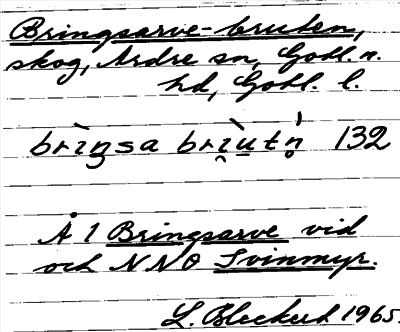 Bringsarve-bruten,
skog, Ardre sn, Gotl. n.
hd, Gotl. l.
brìŋsa brì̯u̠tǹ̥ 132
Å 1 Bringsarve vid
och NNO Svinmyr.
L. Bleckert 1965.